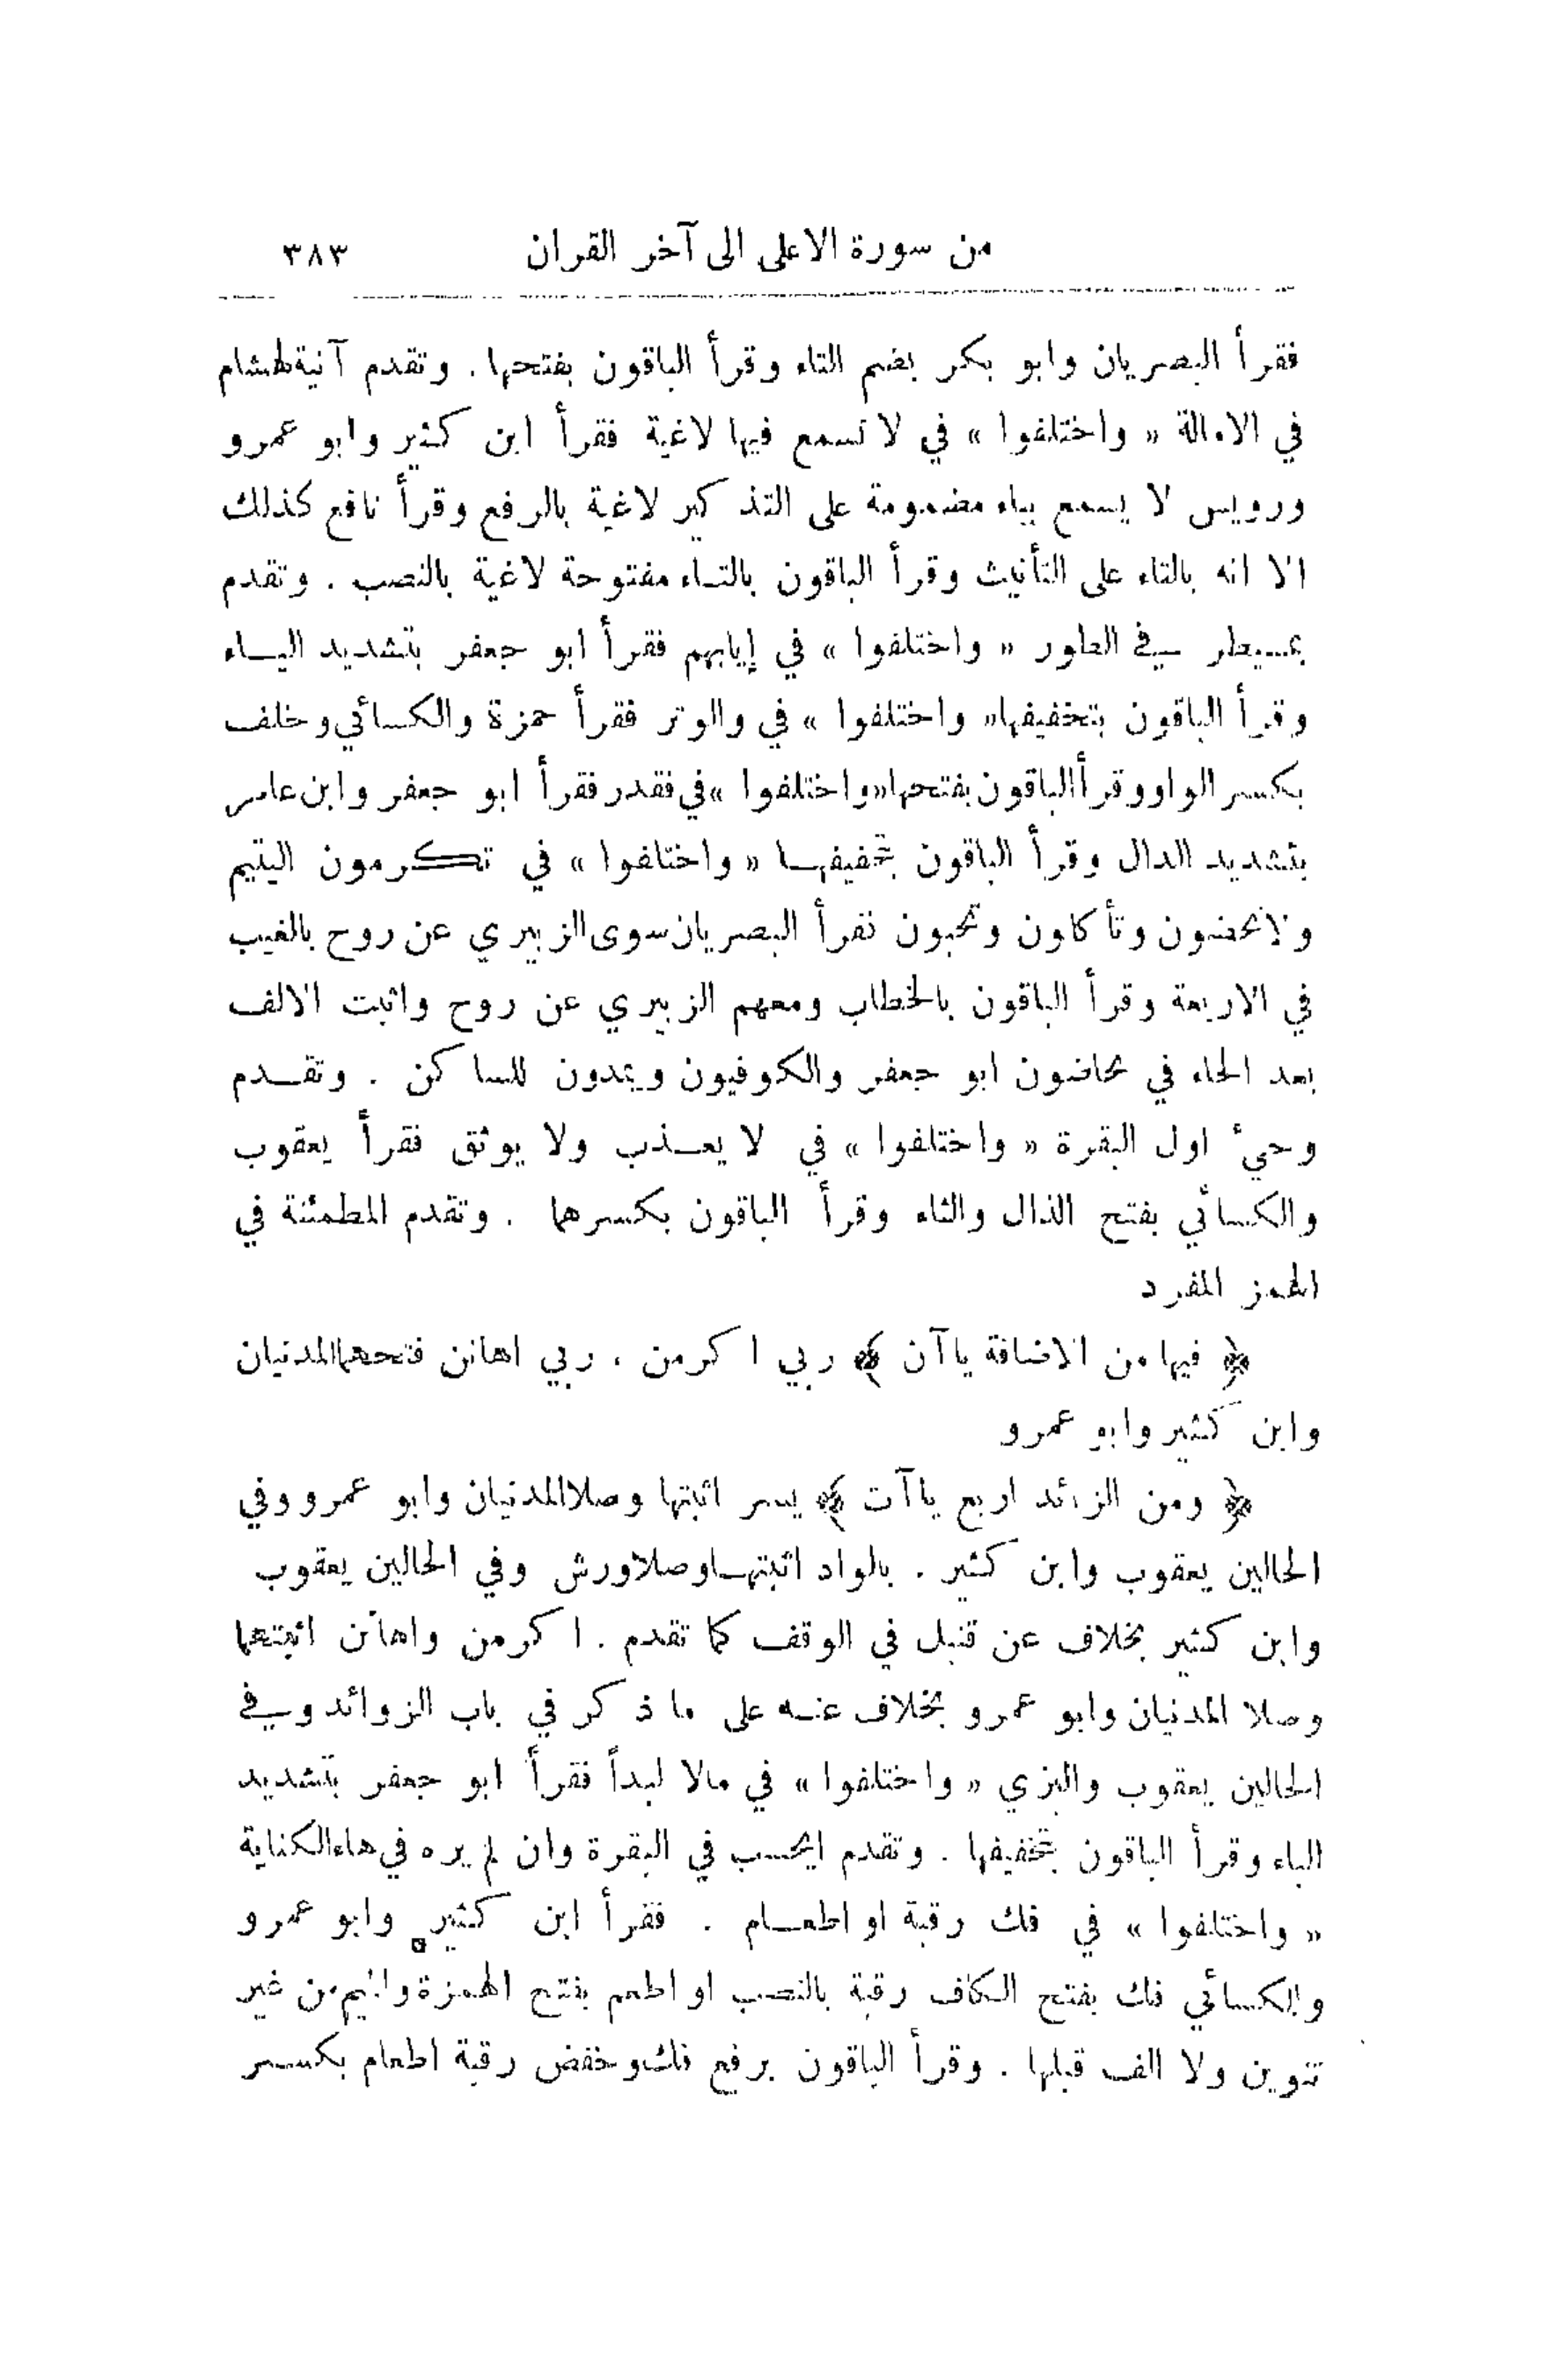 من سورة الاعلى الى آخر القران ٣٨٣
فقرأ البصريان وابو بكر بضم التاء وقرأ الباقون بفتحها . وتقدم آنية لهشام
في الامالة « واختلفوا » في لا تسمع فيها لاغية فقرأ ابن كثير وابو عمرو
ورويس لا يسمع بياء مضمومة على التذكير لاغية بالرفع وقرأ نافع كذلك
الا انه بالتاء على التأنيث وقرأ الباقون بالتاء مفتوحة لاغية بالنصب . وتقدم
بمسيطر في الطور « واختلفوا » في إيابهم فقرأ ابو جعفر بتشديد الياء
وقرأ الباقون بتخفيفها « واختلفوا » في والوتر فقرأ حمزة والكسائي وخلف
بكسر الواو وقرأ الباقون بفتحها « واختلفوا » في فقدر فقرأ ابو جعفر وابن عامر
بتشديد الدال وقرأ الباقون بتخفيفها « واختلفوا » في تكرمون اليتيم
ولا تحضون وتأكلون وتحبون فقرأ البصريان سوى الزبيري عن روح بالغيب
في الاربعة وقرأ الباقون بالخطاب ومعهم الزبيري عن روح واثبت الالف
بعد الحاء في تحاضون ابو جعفر والكوفيون ويمدون للساكن . وتقدم
وجيء اول البقرة « واختلفوا » في لا يعذب ولا يوثق فقرأ يعقوب
والكسائي بفتح الذال والثاء وقرأ الباقون بكسرهما . وتقدم المطمئنة في
الهمز المفرد
﴿ فيها من الاضافة ياآن ﴾ ربي اكرمن . ربي اهانن فتحهما المدنيان
وابن كثير وابو عمرو
﴿ ومن الزوائد اربع ياآت ﴾ يسر اثبتها وصلا المدنيان وابو عمرو وفي
الحالين يعقوب وابن كثير . بالواد اثبتها وصلا ورش وفي الحالين يعقوب
وابن كثير بخلاف عن قنبل في الوقف كما تقدم . اكرمن واهانن اثبتهما
وصلا المدنيان وابو عمرو بخلاف عنه على ما ذكر في باب الزوائد وفي
الحالين يعقوب والبزي « واختلفوا » في مالا لبدأ فقرأ ابو جعفر بتشديد
الباء وقرأ الباقون بتخفيفها . وتقدم ايحسب في البقرة وان لم يره في هاء الكناية
« واختلفوا » في فك رقبة او اطعام . فقرأ ابن كثير وابو عمرو
والكسائي فك بفتح الكاف رقبة بالنصب او اطعم بفتح الهمزة والميم من غير
تنوين ولا الف قبلها . وقرأ الباقون برفع فك وخفض رقبة اطعام بكسر